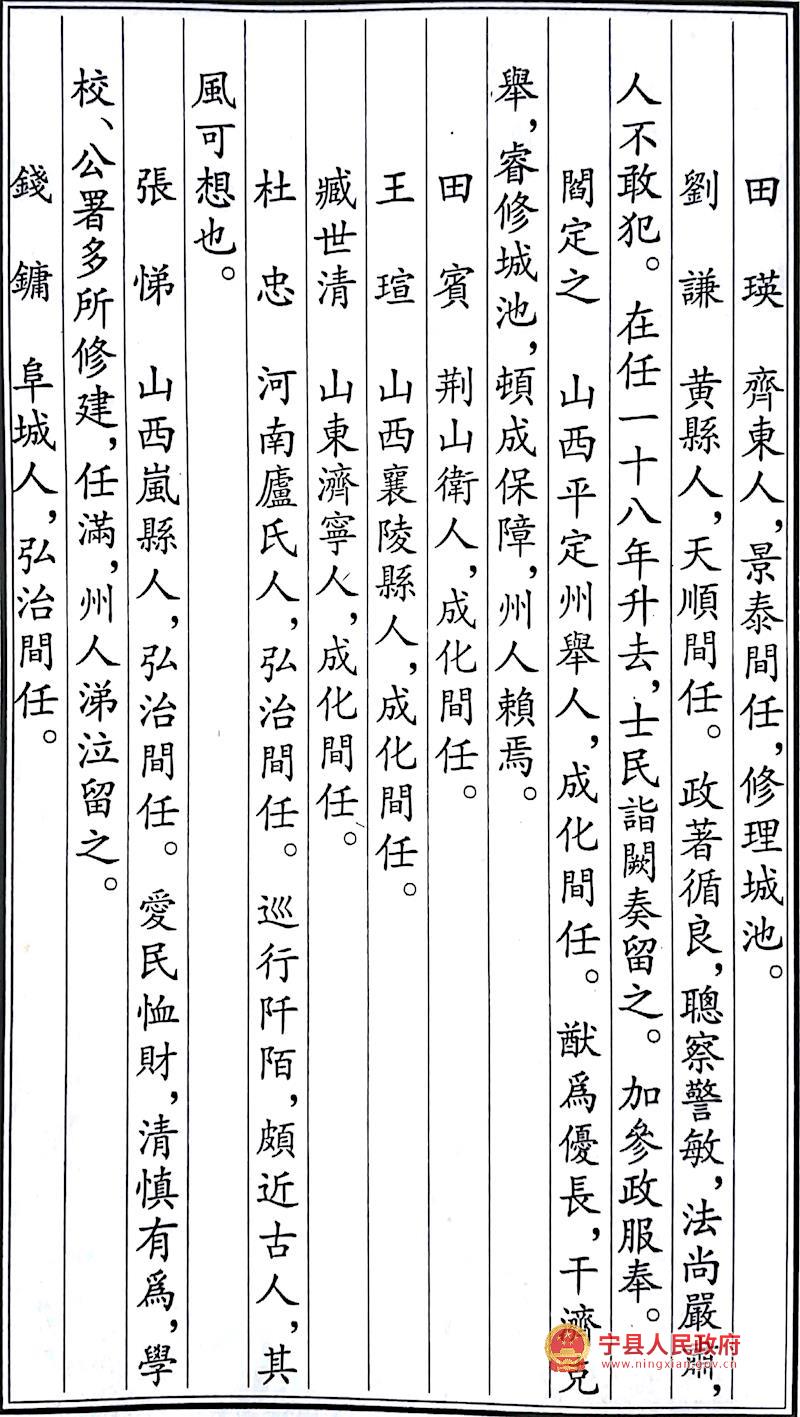 田瑛　齊東人，景泰間任，修理城池。
劉謙　黃縣人，天順間任。政著循良，聰察警敏，法尚嚴肅，
人不敢犯。在任一十八年升去，士民詣闕奏留之。加參政服奉。
閻定之　山西平定州舉人，成化間任。猷爲優長，干濟克
舉，睿修城池，頓成保障，州人賴焉。
田賓　荆山衛人，成化間任。
王瑄　山西襄陵縣人，成化間任。
臧世清　山東濟寧人，成化間任。
杜忠　河南盧氏人，弘治間任。巡行阡陌，頗近古人，其
風可想也。
張悌　山西嵐縣人，弘治間任。愛民恤財，清慎有爲，學
校、公署多所修建，任滿，州人涕泣留之。
錢鏞　阜城人，弘治間任。
宁县人民政府
www.ningxian.gov.cn